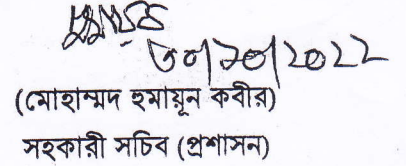 ৩০/১০/2022
(মোহাম্মদ হুমায়ূন কবীর)
সহকারী সচিব (প্রশাসন)